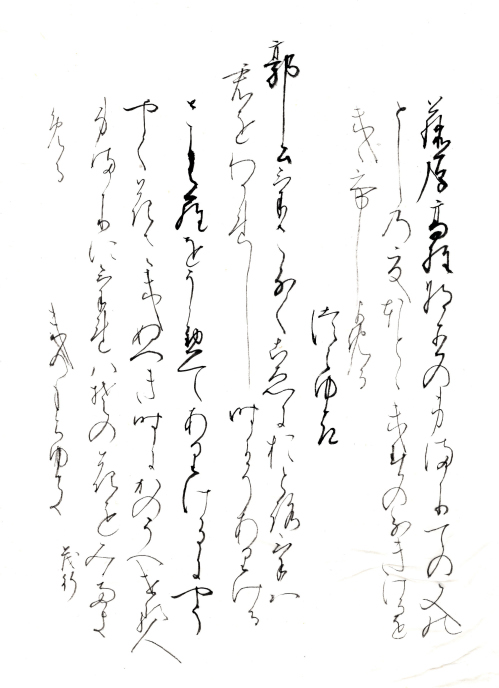 藤原高経朝臣の身まかりての又の
としの夏ほとゝきすのなきけるを
きゝてよめる
つらゆき
郭公けさなくこゑにおとろけは
君をわかれし時にそありける
さくらをうゑてありけるにやう
やく花さきぬへき時にかのうへける人
身まかりにけれはその花をみて
よめる きのもちゆき
茂行